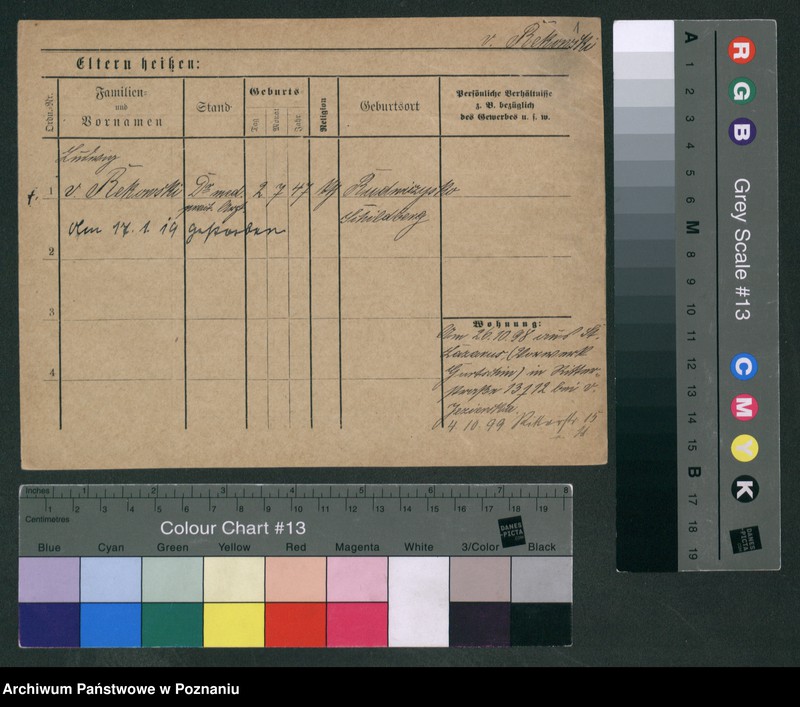 v. Rekowski
1
Eltern heißen:
Ordn.-Nr.
Familien-
und
Vornamen
Stand
Geburts-
Tag
Monat
Jahr
Religion
Geburtsort
Persönliche Verhältnisse
z. B. bezüglich
des Gewerbes u. s. w.
Ludwig
1 v. Rekowski Dr med. 2 7 47 Rudniczysko
prakt. Arzt Schildberg
Am 17. 1. 19 gestorben
2
3
4
Wohnung:
Am 26.10.98 aus St.
Lazarus (Vorwerk
Gurtschin) in Ritter-
straße 13 bei v.
4.10.99 Ritterstr 15
Inches 1 2 3 4 5 6 7 8
Centimetres 1 2 3 4 5 6 7 8 9 10 11 12 13 14 15 16 17 18 19
Colour Chart #13
DANES
-PICTA
Blue Cyan Green Yellow Red Magenta White 3/Color Black
A 1 2 3 4 5 6 M 8 9 10 11 12 13 14 15 B 17 18 19
R G B
Grey Scale #13
C M Y K
DANES
-PICTA
Archiwum Państwowe w Poznaniu